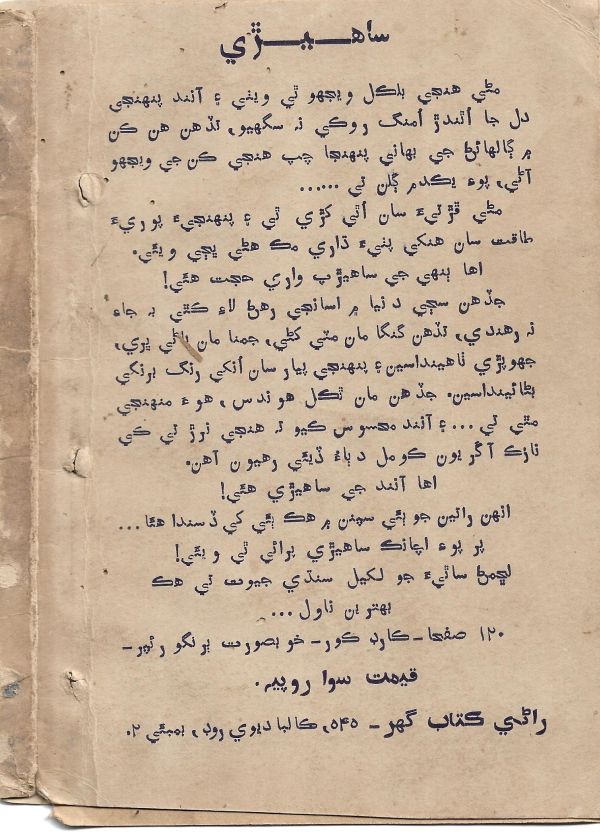 ساهيڙي
مڻي هنجي بلڪل ويجهو ٿي ويئي ۽ آنند پنهنجي
دل جا اُٿندڙ اُمنگ روڪي نہ سگهيو، تڏهن هن ڪن
۾ ڳالهائڻ جي بهاني پنهنجا چپ هنجي ڪن جي ويجهو
آڻي، پوءِ يڪدم ڳلن تي ......
مڻي ڦڙتيءَ سان اُٿي کڙي ٿي ۽ پنهنجيءَ پوريءَ
طاقت سان هنکي پٺيءَ ڌاري مڪ هڻي ڀڄي ويئي.
اها ٻنهي جي ساهيڙپ واري حجت هئي!
جڏهن سڄي دنيا ۾ اسانجي رهڻ لاءِ ڪٿي بہ جاءِ
نہ رهندي، تڏهن گنگا مان مٽي کڻي، جمنا مان پاڻي ڀري،
جهوپڙي ٺاهينداسين ۽ پنهنجي پيار سان اُنکي رنگ برنگي
بڻائينداسين. جڏهن مان ٿڪل هوندس، هوءَ منهنجي
مٿي تي ... ۽ آنند محسوس ڪيو تہ هنجي نرڙ تي ڪي
نازڪ آڱريون ڪومل دٻاءُ ڏيئي رهيون آهن.
اها آنند جي ساهيڙي هئي!
انهن راتين جو ٻئي سپنن ۾ هڪ ٻئي کي ڏسندا هئا...
پر پوءِ اچانڪ ساهيڙي پرائي ٿي ويئي!
لڇمڻ ساٿيءَ جو لکيل سنڌي جيوت تي هڪ
بهترين ناول...
١٢٠ صفحا ــ ڪارڊ ڪور ــ خوبصورت برنگو رئپر ــ
قيمت سوا روپيہ.
راڻي ڪتاب گهر ــ ٥٤٥، ڪالبا ديوي روڊ، بمبئي ٢.